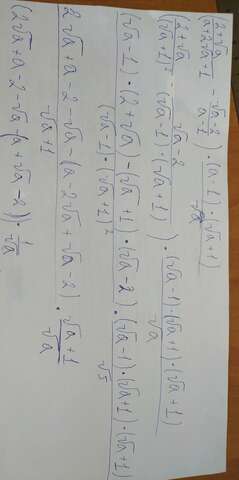 (2+√a / a+2√a+1 - √a-2 / a-1) · (a-1)·(√a+1) / √a
(2+√a / (√a+1)² - √a-2 / (√a-1)·(√a+1)) · (√a-1)·(√a+1)·(√a+1) / √a
(√a-1)·(2+√a-(√a+1)·√a-2) / (√a-1)·(√a+1)² · (√a-1)·(√a+1)·(√a+1) / √5
2√a+a-2-√a-(a-2√a+√a-2) / √a+1 · √a+1 / √a
(2√a+a-2-√a-(a+√a-2)) · 1 / √a